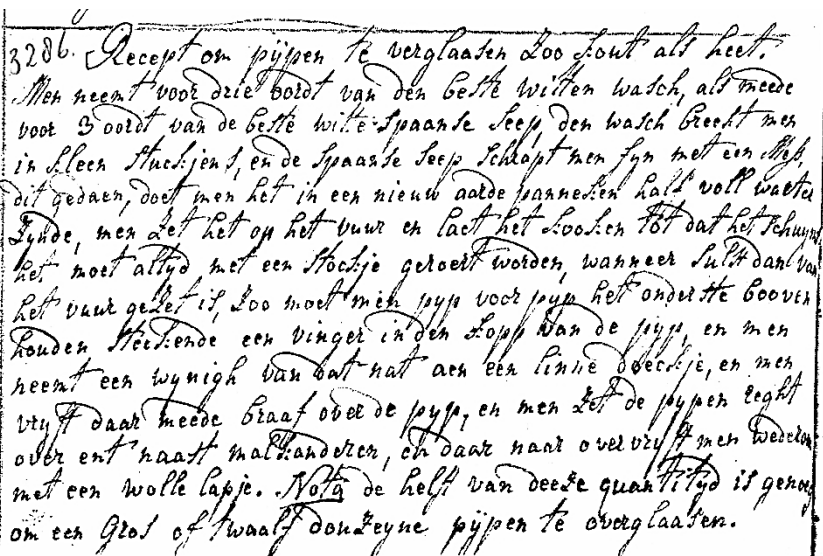 3286. Recept om pijpen te verglaasen Zoo Kout als heet.
Men neemt voor drie oordt van den beste witten wasch, als meede
voor 3 oordt van de beste witte Spaanse Seep, den wasch breekt men
in kleen Stuckjens, en de Spaanse Seep Schrapt men fyn met een Mess,
dit gedaen, doet men het in een nieuw aarde panneken half voll water
Zynde, men Zet het op het vuur en laet het kooken tot dat het Schuymt
het moet altyd met een Stockje geroert worden, wanneer Sulx dan van
het vuur geZet is, Zoo moet men pyp voor pyp het onderste booven
houden Steekende een vinger in den Kopp van de pyp, en men
neemt een wynigh van dat nat aen een linne doeckje, en men
vryft daar meede braaf over de pyp, en men Zet de pypen reght
over ent naast malkanderen, en daar naar overvryft men wederom
met een wolle lapje. Nota de helft van deeze quantityd is genoeg
om een Gros of twaalf douZeyne pijpen te overglaasen.